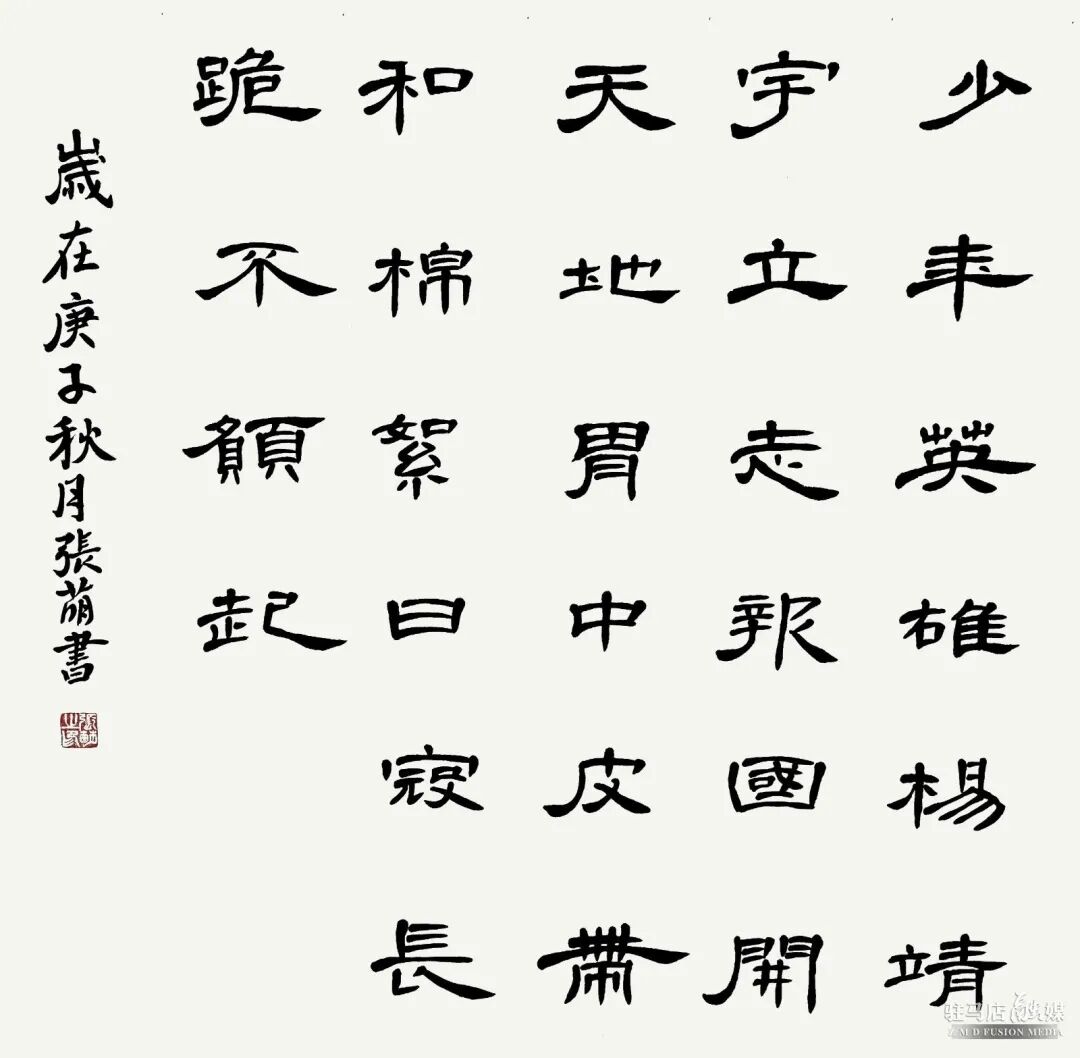 少年英雄楊靖
宇立志報國開
天地胃中皮帶
和棉絮日寇長
跪不願起
歲在庚子秋月張萌書
驻马店融媒
ZMD FUSION MEDIA